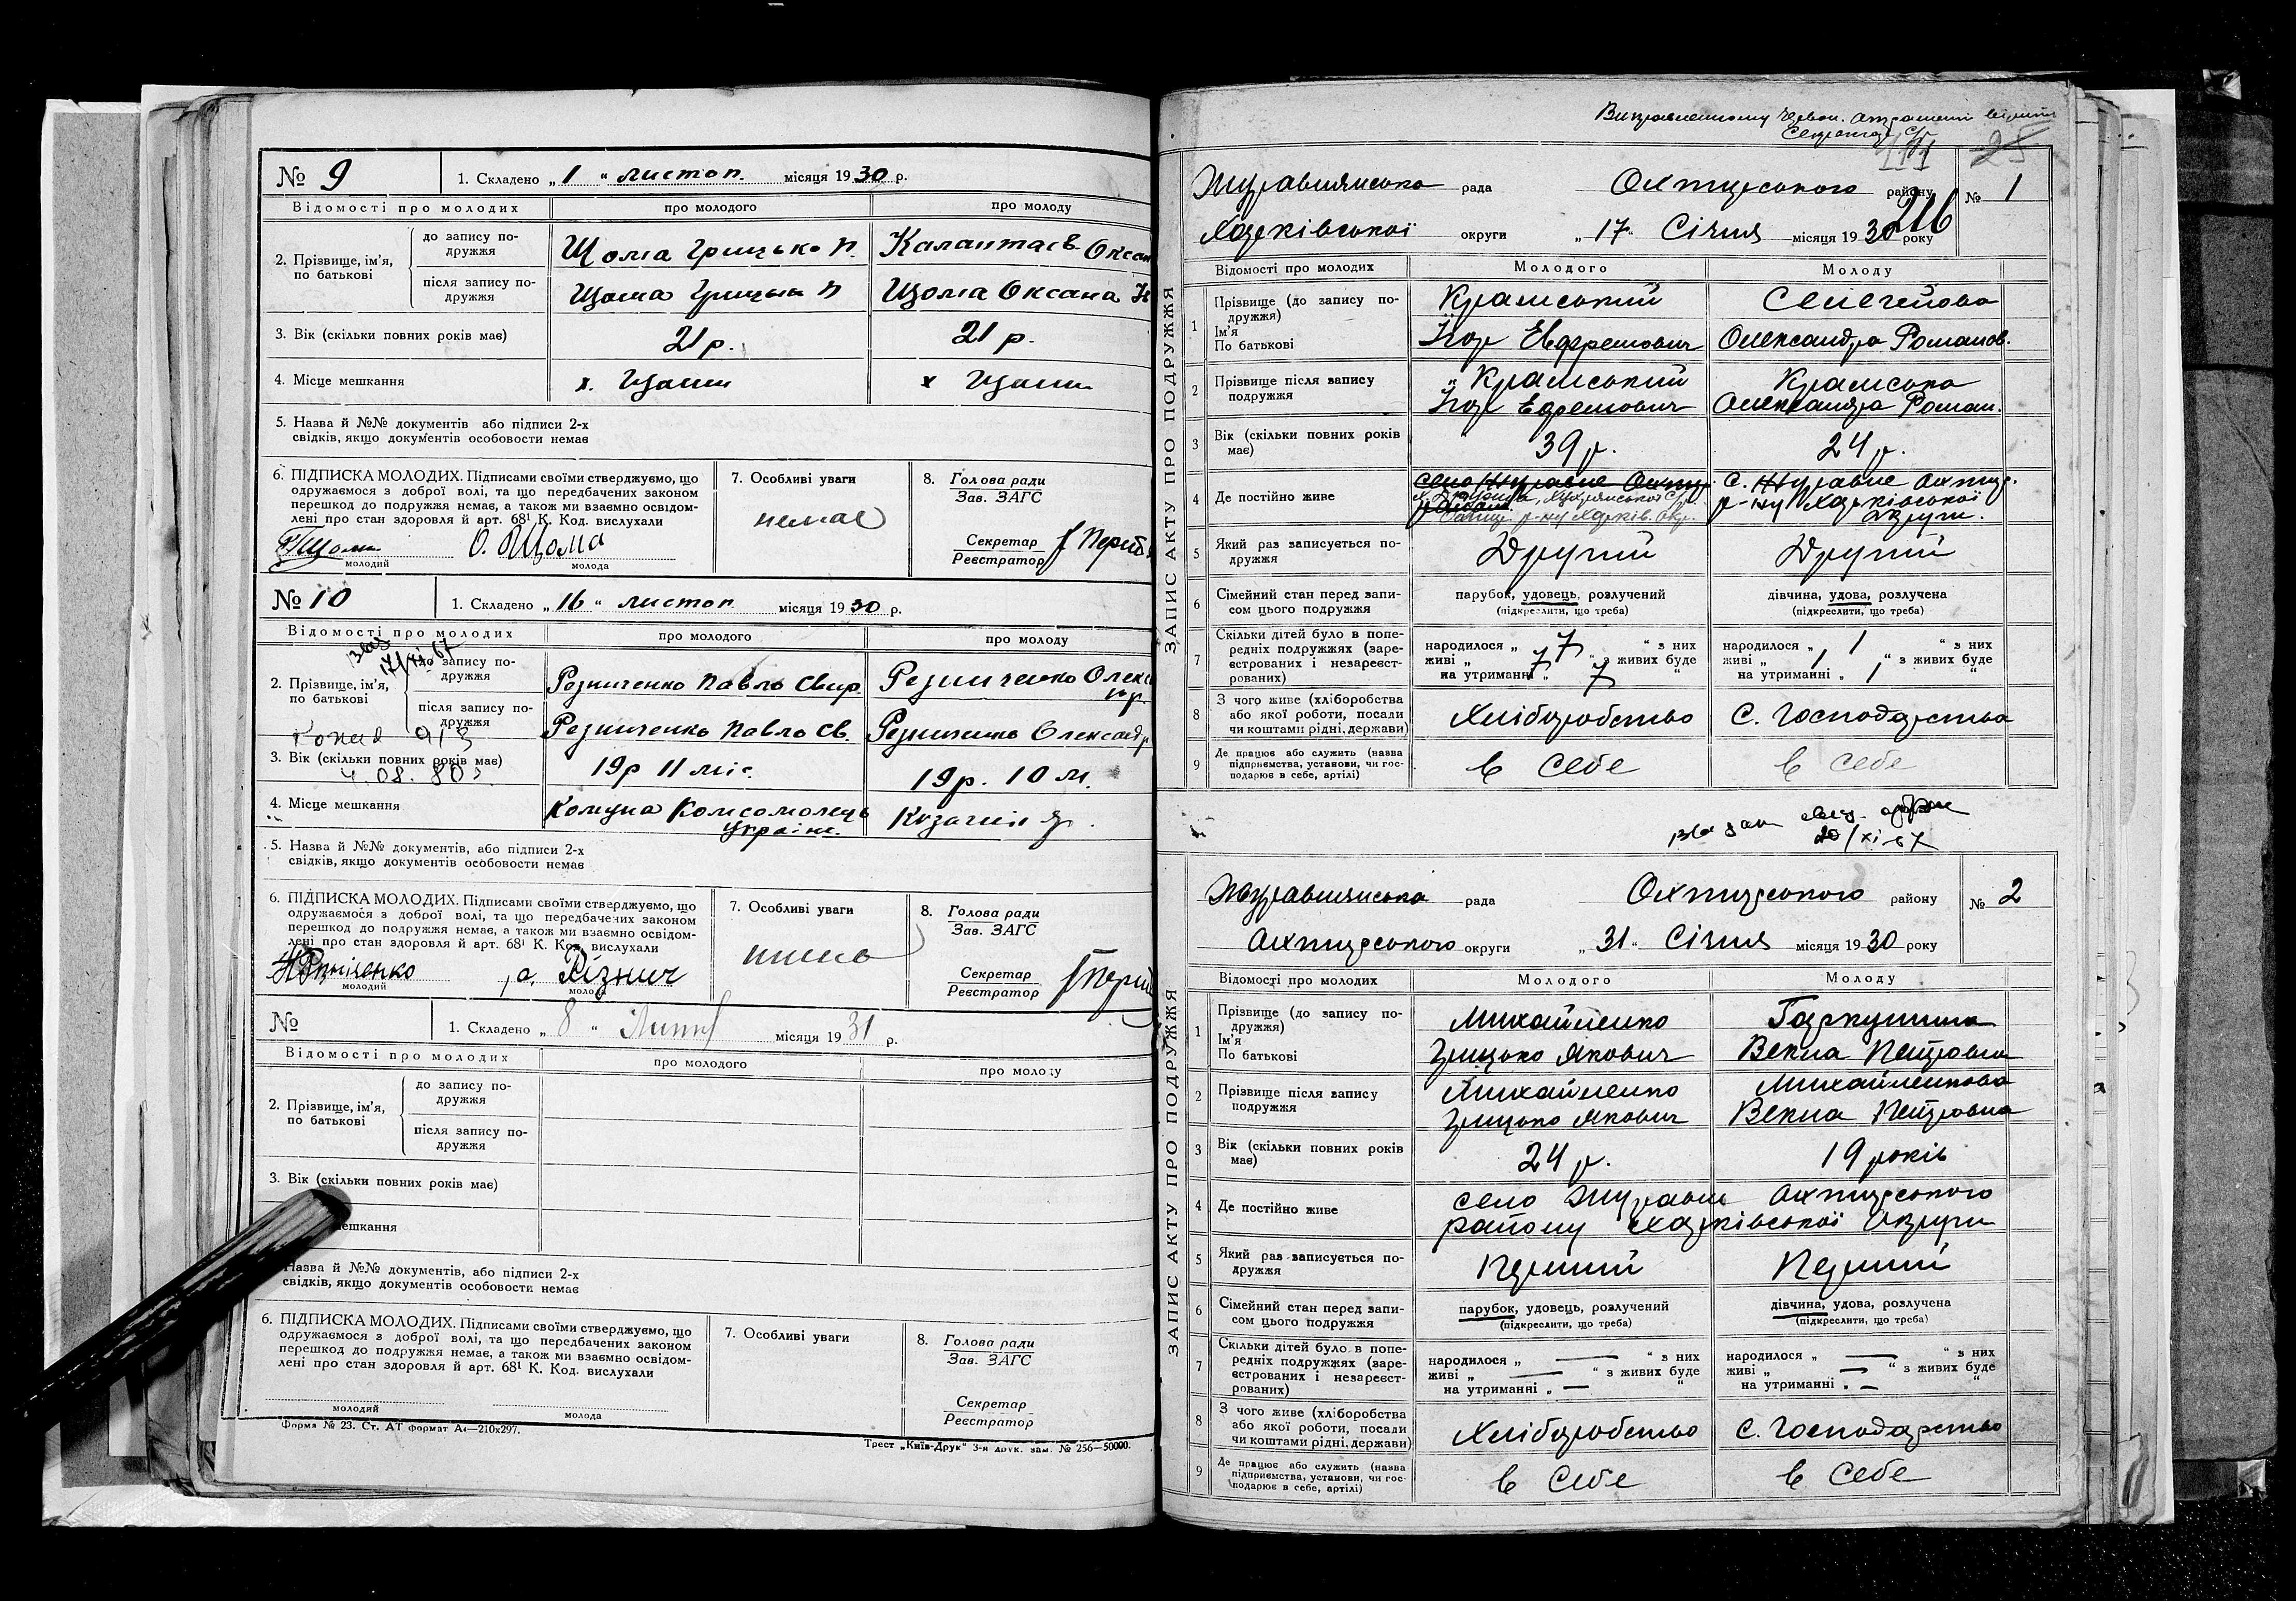 № 9
1. Складено „ 1 " листоп. місяця 1930 р.
Відомості про молодих
про молодого
про молоду
2. Прізвище, ім'я, по батькові
до запису по-
дружжя
Щома Грицько П.
Калантаєв Оксан
після запису по-
дружжя
Щома Грицько П
Щома Оксана
3. Вік (скільки повних років має)
21 р.
21 р.
4. Місце мешкання
х. Щоми
х Щоми
5. Назва й №№ документів або підписи 2-х
свідків, якщо документів особовости немає
6. ПІДПИСКА МОЛОДИХ. Підписами своїми стверджуємо, що
одружаємося з доброї волі, та що передбачених законом
перешкод до подружжя немає, а також ми взаємно освідом-
лені про стан здоровля й арт. 68¹ К. Код. вислухали
Щома
О. Щома
молодий
молода
7. Особливі уваги
немає
8. Голова ради
Зав. ЗАГС
Секретар
Реєстратор
№ 10
1. Складено „ 16 " листоп місяця 1930 р.
Відомості про молодих
про молодого
про молоду
17/XI 67
2. Прізвище, ім'я,
по батькові
до запису по-
дружжя
Резниченко Павло Свир.
Резниченко Олекс
після запису по-
дружжя
Резниченко Павло Св.
Резниченко Олександр
3. Вік (скільки повних років має)
4.08.80
19р 11 міс.
19р. 10 м.
4. Місце мешкання
Комуна Комсомолець
України.
5. Назва й №№ документів, або підписи 2-х
свідків, якщо документів особовости немає
6. ПІДПИСКА МОЛОДИХ. Підписами своїми стверджуємо, що
одружаємося з доброї волі, та що передбачених законом
перешкод до подружжя немає, а також ми взаємно освідом-
лені про стан здоровля й арт. 68¹ К. Код. вислухали
молодий
молода
7. Особливі уваги
8. Голова ради
Зав. ЗАГС
Секретар
Реєстратор
№
1. Складено „ 8 " місяця 1931 р.
Відомості про молодих
про молодого
про молоду
2. Прізвище, ім'я,
по батькові
до запису по-
дружжя
після запису по-
дружжя
3. Вік (скільки повних років має)
мешкання
Назва й №№ документів, або підписи 2-х
свідків, якщо документів особовости немає
6. ПІДПИСКА МОЛОДИХ. Підписами своїми стверджуємо, що
одружаємося з доброї волі, та що передбачених законом
перешкод до подружжя немає, а також ми взаємно освідом-
лені про стан здоровля й арт. 68¹ К. Код. вислухали
молодий
молода
7. Особливі уваги
8. Голова ради
Зав. ЗАГС
Секретар
Реєстратор
Форма № 23. Ст. АТ формат А4—210х297.
Трест „Київ-Друк" 3-я друк. зам. № 256—50000.
Виправленному червон. атрамент вірити
Секретар с/р
25
ЗАПИС АКТУ ПРО ПОДРУЖЖЯ
Журавлянська рада Охтирського району № 1
Харківської округи „ 17 " Січня місяця 1930 року
216
Відомості про молодих
Молодого
Молоду
1
Прізвище (до запису по-
дружжя)
Ім'я
По батькові
Крамський
Ігор Евфремович
Семегейова
Олександра Романов.
2
Прізвище після запису
подружжя
Крамський
Ігор Ефремович
Крамська
Олександра Роман.
3
Вік (скільки повних років
має)
39 р.
24 р.
4
Де постійно живе
Село Журавне Охтир.
С. Журавне Охтир.
р-ну Харківської
Округи.
5
Який раз записується по-
дружжя
Другий
Другий
6
Сімейний стан перед запи-
сом цього подружжя
парубок, удовець, розлучений
(підкреслити, що треба)
дівчина, удова, розлучена
(підкреслити, що треба)
7
Скільки дітей було в попе-
редніх подружжях (заре-
єстрованих і незареєст-
рованих)
народилося „ 7 " з них
живі „ 7 " з живих буде
на утриманні „ 7 "
народилося „ 1 " з них
живі „ 1 " з живих буде
на утриманні „ 1 "
8
З чого живе (хліборобства
або якої роботи, посади
чи коштами рідні, держави)
Хліборобство
С. Господарство
9
Де працює або служить (назва
підприємства, установи, чи гос-
подарює в себе, артілі)
в себе
в себе
20/XI-67
ЗАПИС АКТУ ПРО ПОДРУЖЖЯ
Журавлянська рада Охтирського району № 2
Охтирського округи „ 31 " Січня місяця 1930 року
Відомості про молодих
Молодого
Молоду
1
Прізвище (до запису по-
дружжя)
Ім'я
По батькові
Михайленко
Грицько Якович
Гаркушина
Векла Петровна
2
Прізвище після запису
подружжя
Михайленко
Грицько Якович
Михайленкова
Векла Петровна
3
Вік (скільки повних років
має)
24 р.
19 років
4
Де постійно живе
село Журавне Охтирського
району Харківської Округи
5
Який раз записується по-
дружжя
Перший
Перший
6
Сімейний стан перед запи-
сом цього подружжя
парубок, удовець, розлучений
(підкреслити, що треба)
дівчина, удова, розлучена
(підкреслити, що треба)
7
Скільки дітей було в попе-
редніх подружжях (заре-
єстрованих і незареєст-
рованих)
народилося „ — " з них
живі „ — " з живих буде
на утриманні „ — "
народилося „ — " з них
живі „ — " з живих буде
на утриманні „ — "
8
З чого живе (хліборобства
або якої роботи, посади
чи коштами рідні, держави)
Хліборобство
С. Господарство
9
Де працює або служить (назва
підприємства, установи, чи гос-
подарює в себе, артілі)
в себе
в себе